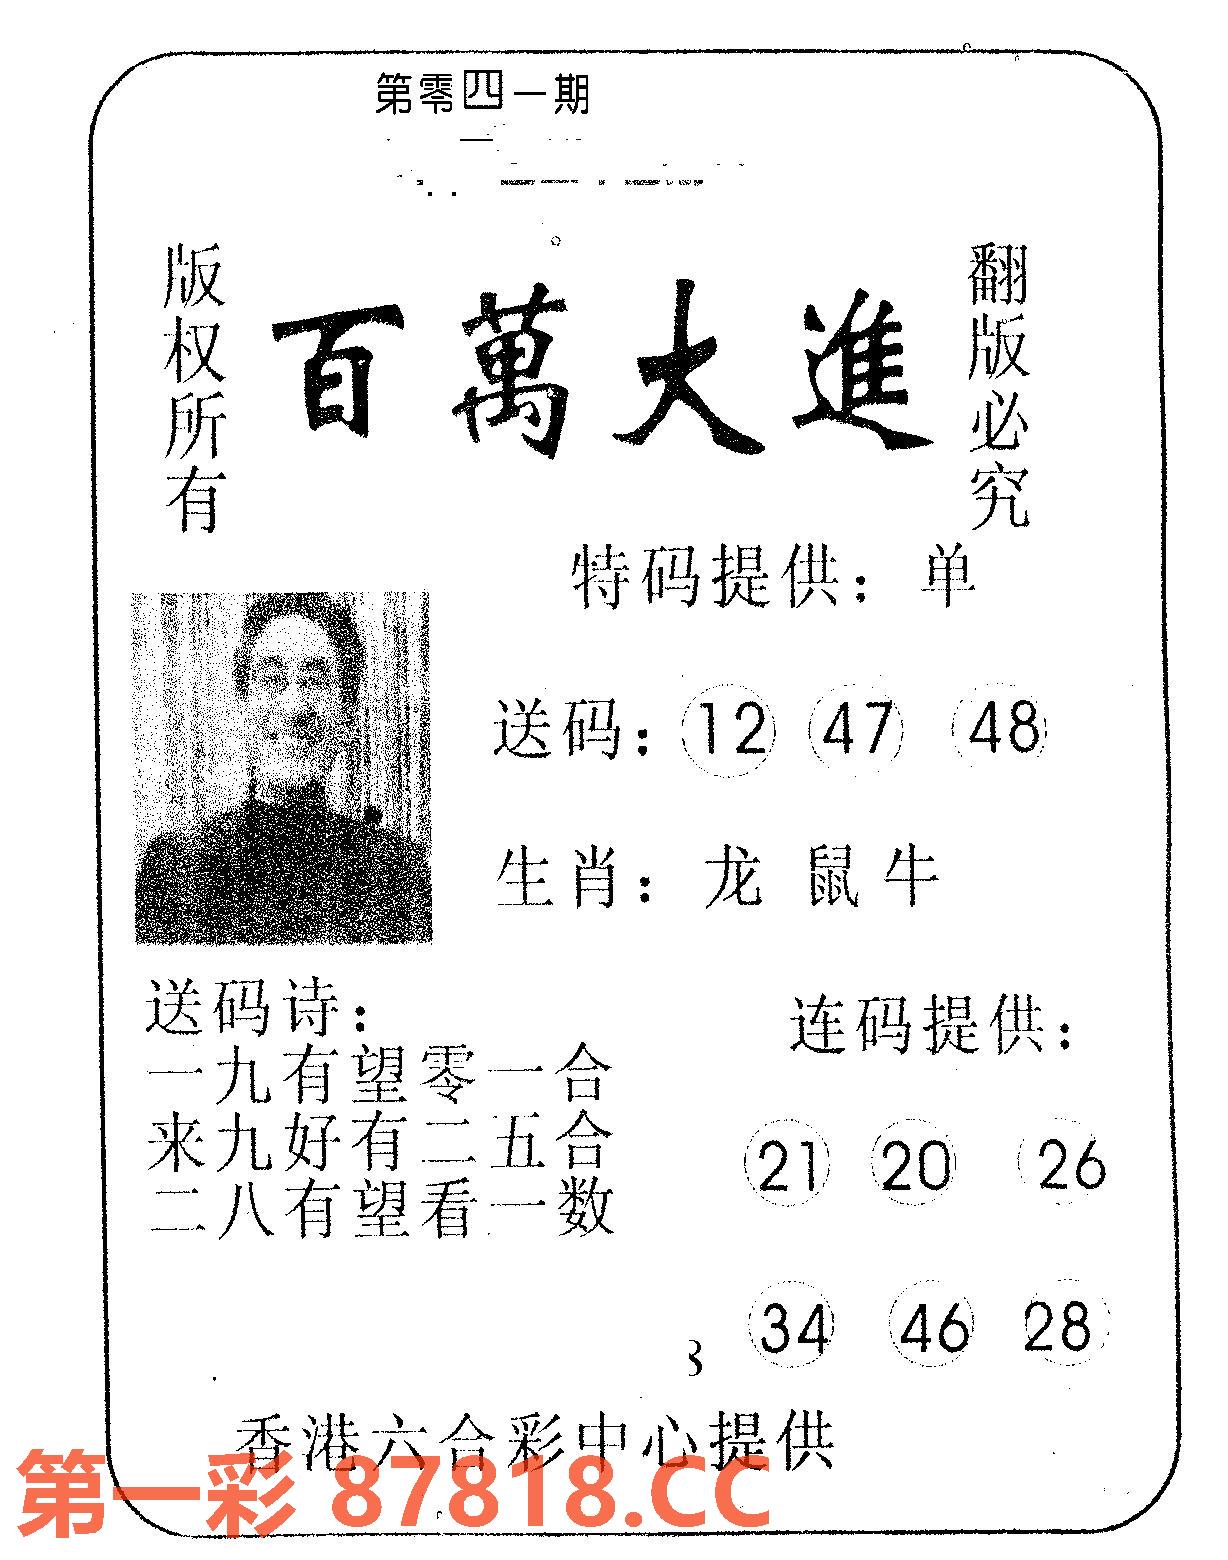 第零四一期
版权所有
百萬大進
翻版必究
特码提供：单
送码：12 47 48
生肖：龙 鼠 牛
送码诗：
一九有望零一合
来九好有二五合
二八有望看一数
连码提供：
21 20 26
34 46 28
香港六合彩中心提供
第一彩 87818.CC